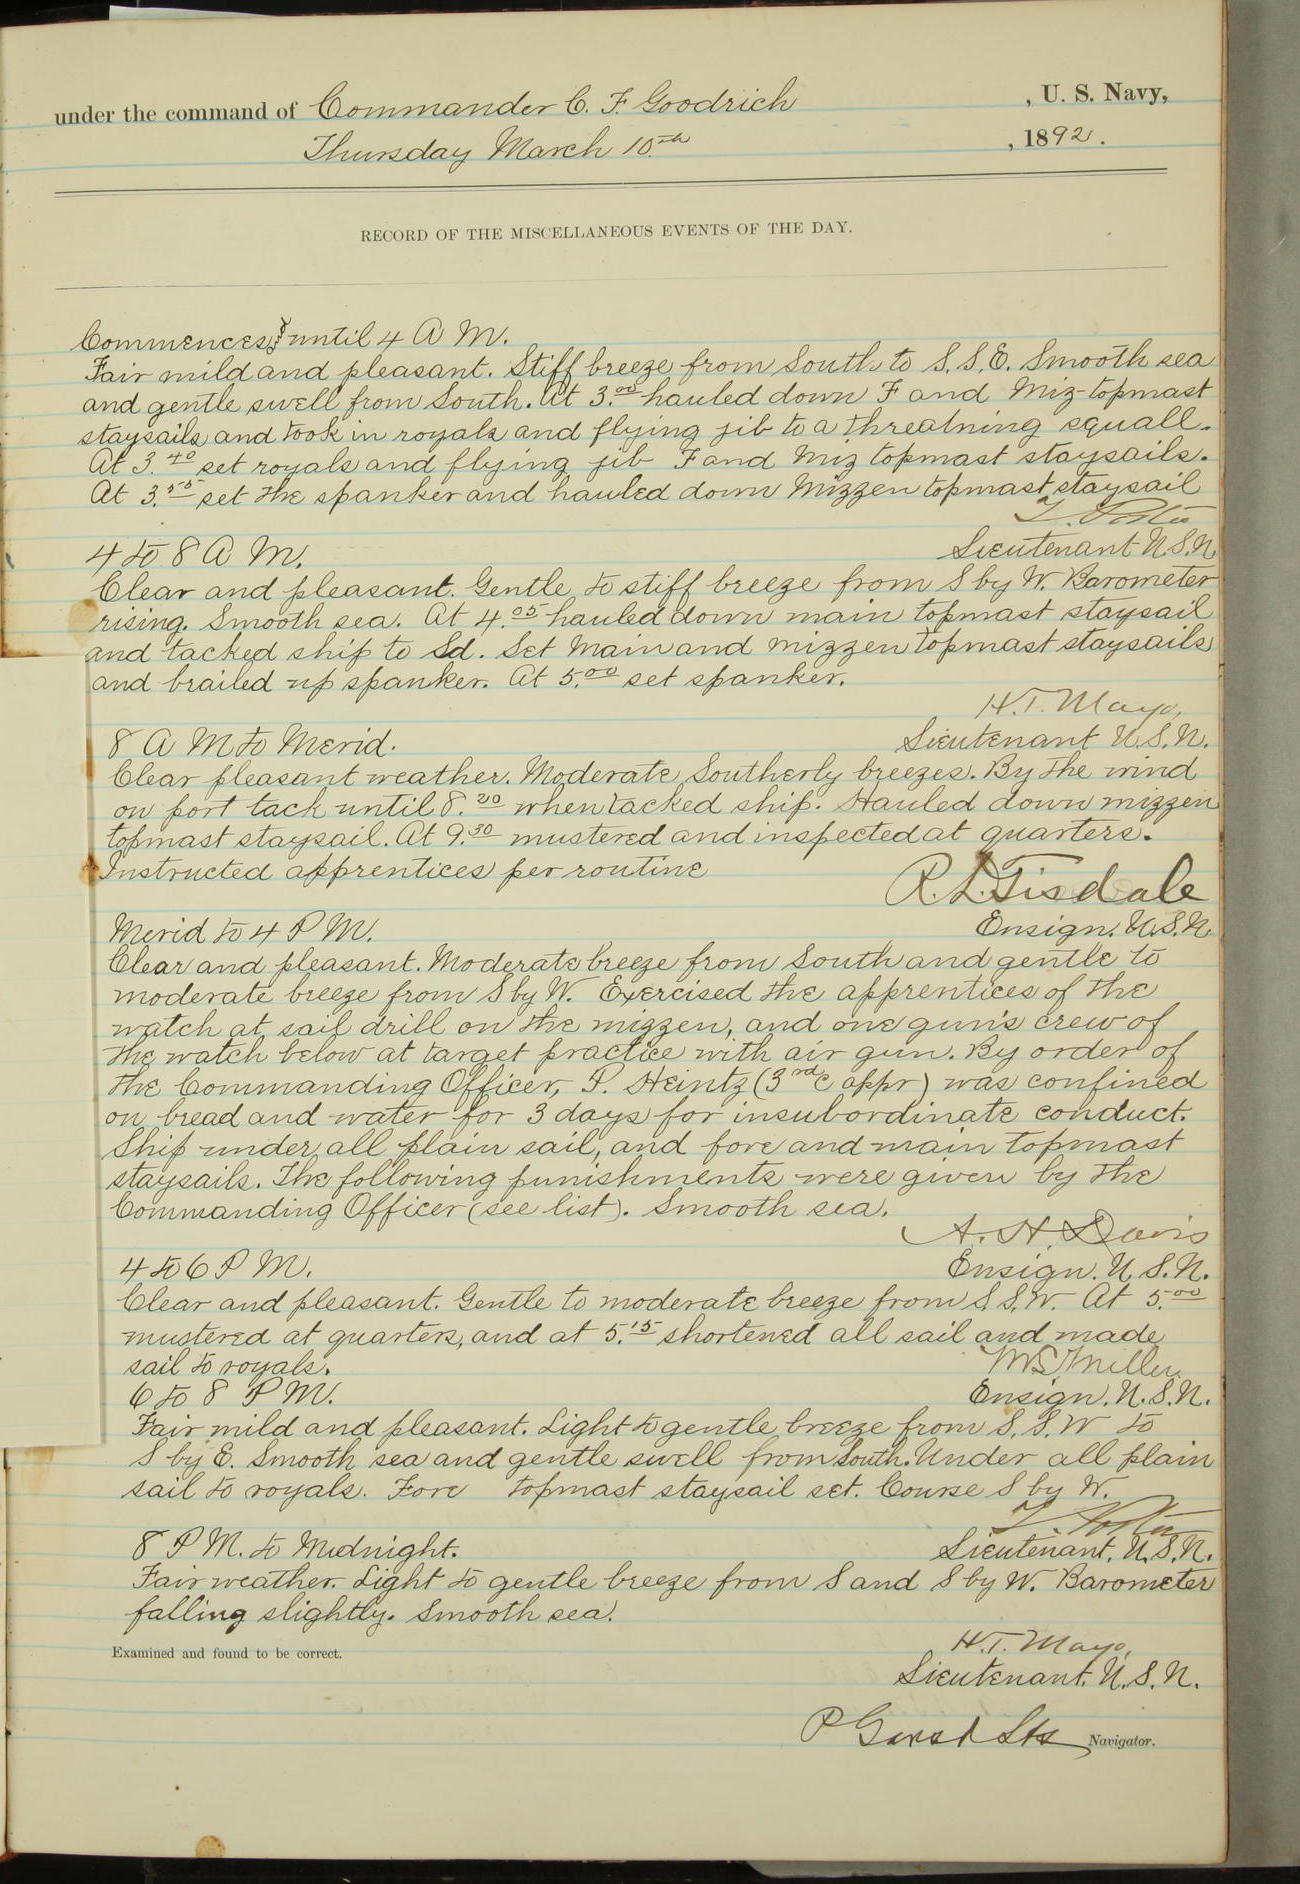 under the command of Commander C. F. Goodrich , U. S. Navy,
Thursday March 10th , 1892.
RECORD OF THE MISCELLANEOUS EVENTS OF THE DAY.
Commences & until 4 A M.
Fair mild and pleasant. Stiff breeze from South to S. S. E. Smooth sea
and gentle swell from South. At 3.00 hauled down F and Miz-topmast
staysails and took in royals and flying jib to a threatning squall.
At 3.40 set royals and flying jib F and Miz topmast staysails.
At 3.55 set the spanker and hauled down Mizzen topmast staysail
Lieutenant U.S.N.
4 to 8 A M.
Clear and pleasant. Gentle to stiff breeze from S by W. Barometer
rising. Smooth sea. At 4.05 hauled down main topmast staysail
and tacked ship to Sd. Set Main and mizzen topmast staysails
and brailed up spanker. At 5.00 set spanker.
H. T. Mayo,
Lieutenant U.S.N.
8 A M to Merid.
Clear pleasant weather. Moderate Southerly breezes. By the wind
on port tack until 8.20 when tacked ship. Hauled down mizzen
topmast staysail. At 9.30 mustered and inspected at quarters.
Instructed apprentices per routine
R. D. Tisdale
Ensign. U.S.N.
Merid to 4 P M.
Clear and pleasant. Moderate breeze from South and gentle to
moderate breeze from S by W. Exercised the apprentices of the
watch at sail drill on the mizzen, and one gun's crew of
the watch below at target practice with air gun. By order of
the Commanding Officer, P. Heintz (3rd c appr) was confined
on bread and water for 3 days for insubordinate conduct.
Ship under all plain sail, and fore and main topmast
staysails. The following punishments were given by the
Commanding Officer (see list). Smooth sea.
A. H. Davis
Ensign. U.S.N.
4 to 6 P M.
Clear and pleasant. Gentle to moderate breeze from S. S. W. At 5.00
mustered at quarters, and at 5.15 shortened all sail and made
sail to royals.
Miller
Ensign. U.S.N.
6 to 8 P M.
Fair mild and pleasant. Light to gentle breeze from S. S. W to
S by E. Smooth sea and gentle swell from South. Under all plain
sail to royals. Fore topmast staysail set. Course S by W.
Lieutenant, U.S.N.
8 P M. to Midnight.
Fair weather. Light to gentle breeze from S and S by W. Barometer
falling slightly. Smooth sea.
H. T. Mayo,
Lieutenant. U.S.N.
Examined and found to be correct.
Navigator.